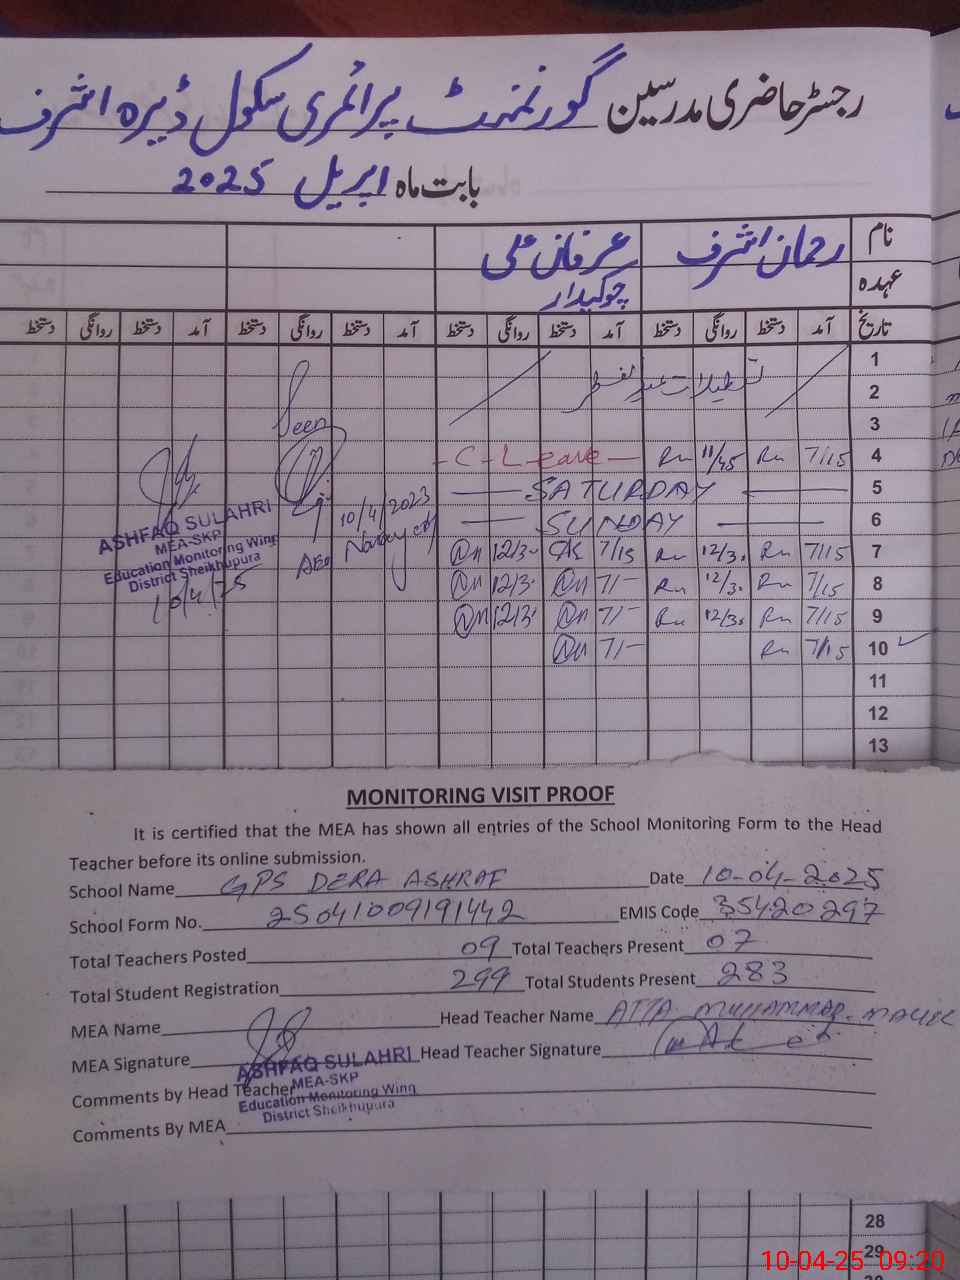 رجسٹر حاضری مدرسین گورنمنٹ پرائمری سکول ڈیرہ اشرف
بابت ماہ اپریل 2025
نام رحمان اشرف عرفان علی
عہدہ چوکیدار
تاریخ آمد دستخط روانگی دستخط آمد دستخط روانگی دستخط آمد دستخط روانگی دستخط آمد دستخط روانگی دستخط
1
2 تعطیلات عید الفطر
3
Seen
4 7/15 Rn 11/45 Rn - C - Leave -
5 SATURDAY
6 SUNDAY
7 7/15 Rn 12/30 Rn 7/15 12/30
8 7/15 Rn 12/30 Rn 7/- 12/30
9 7/15 Rn 12/30 Rn 7/- 12/30
10 7/15 Rn 7/-
11
12
13
10/4/2023
AEO
ASHFAQ SULAHRI
MEA-SKP
Education Monitoring Wing
District Sheikhupura
10/4/25
MONITORING VISIT PROOF
It is certified that the MEA has shown all entries of the School Monitoring Form to the Head
Teacher before its online submission.
School Name GPS DERA ASHRAF Date 10-04-2025
School Form No. 25041009191442 EMIS Code 35420297
Total Teachers Posted 09 Total Teachers Present 07
Total Student Registration 299 Total Students Present 283
MEA Name Head Teacher Name ATTA MUHAMMAD MALIK
MEA Signature Head Teacher Signature
ASHFAQ SULAHRI
Comments by Head Teacher
MEA-SKP
Education Monitoring Wing
District Sheikhupura
Comments By MEA
28
29
30
10-04-25 09:20